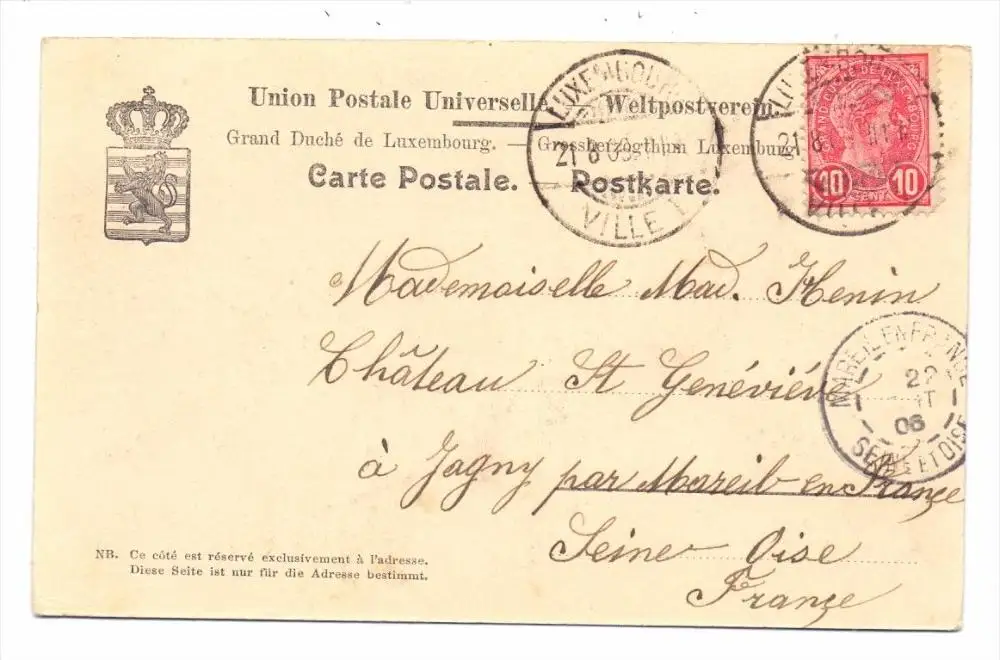 Union Postale Universelle. Weltpostverein.
Grand Duché de Luxembourg. — Grossherzogthum Luxemburg.
Carte Postale. — Postkarte.
LUXEMBOURG
21 8 06
VILLE
10 10
Mademoiselle Mad. Henin
Château St Genéviéve
à Jagny par Mareib en Françe
Seine Oise
Françe
MAREIL EN FRANCE
22
06
SEINE ET OISE
NB. Ce côté est réservé exclusivement à l'adresse.
Diese Seite ist nur für die Adresse bestimmt.